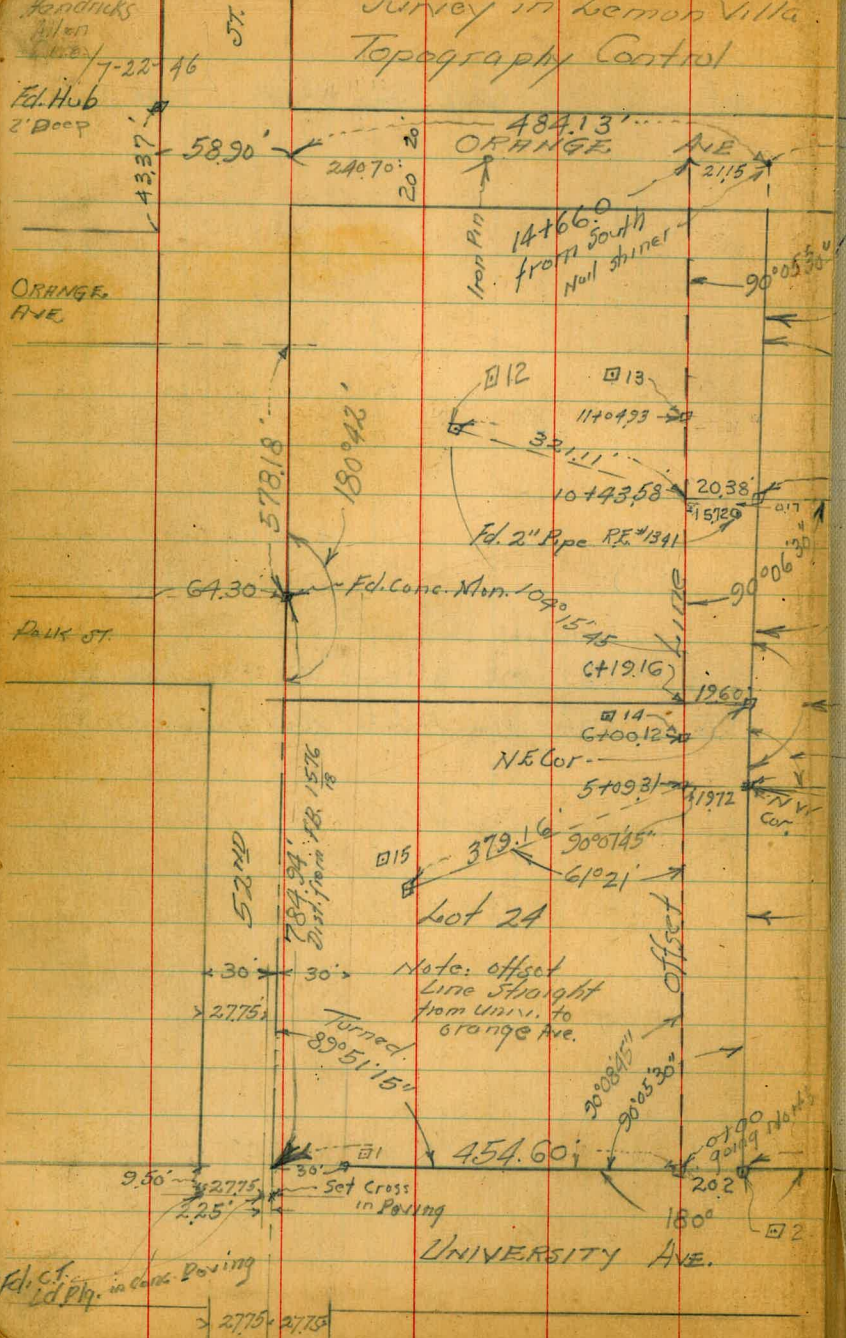 Hendricks
7-22-46
ST.
Survey in Lemon Villa
Topography Control
Fd. Hub
2' Deep
43.37'
58.90'
484.13'
ORANGE AVE
240.70'
20 20
21.15
Iron Pin
14+66.0
from South
Nail shiner
90°05'30"
ORANGE
AVE
12
13
11+04.93
578.18'
180°42'
321.11'
10+43.58
20.38'
15.720
0.17
Fd. 2" Pipe R.E. #1341
90°06'30"
64.30'
Fd. Conc. Mon.
104°15'45
Line
POLK ST.
6+19.16
19.60'
14
6+00.12
NE Cor
5+09.31
19.72
N W
Cor.
52ND
784.94'
Dist. from F.B. 1576
18
15
379.16'
90°07'45"
61°21'
Lot 24
Offset
30' 30'
27.75'
Note: Offset
Line Straight
from Univ. to
Orange Ave.
Turned
89°51'15"
90°08'45"
90°05'30"
0+00
going North
1
454.60'
30'
9.50'
27.75
2.25'
Set Cross
in Paving
20.2
180°
2
UNIVERSITY AVE.
Fd. C.T.
Ld Plg. in Conc. Paving
27.75 27.75